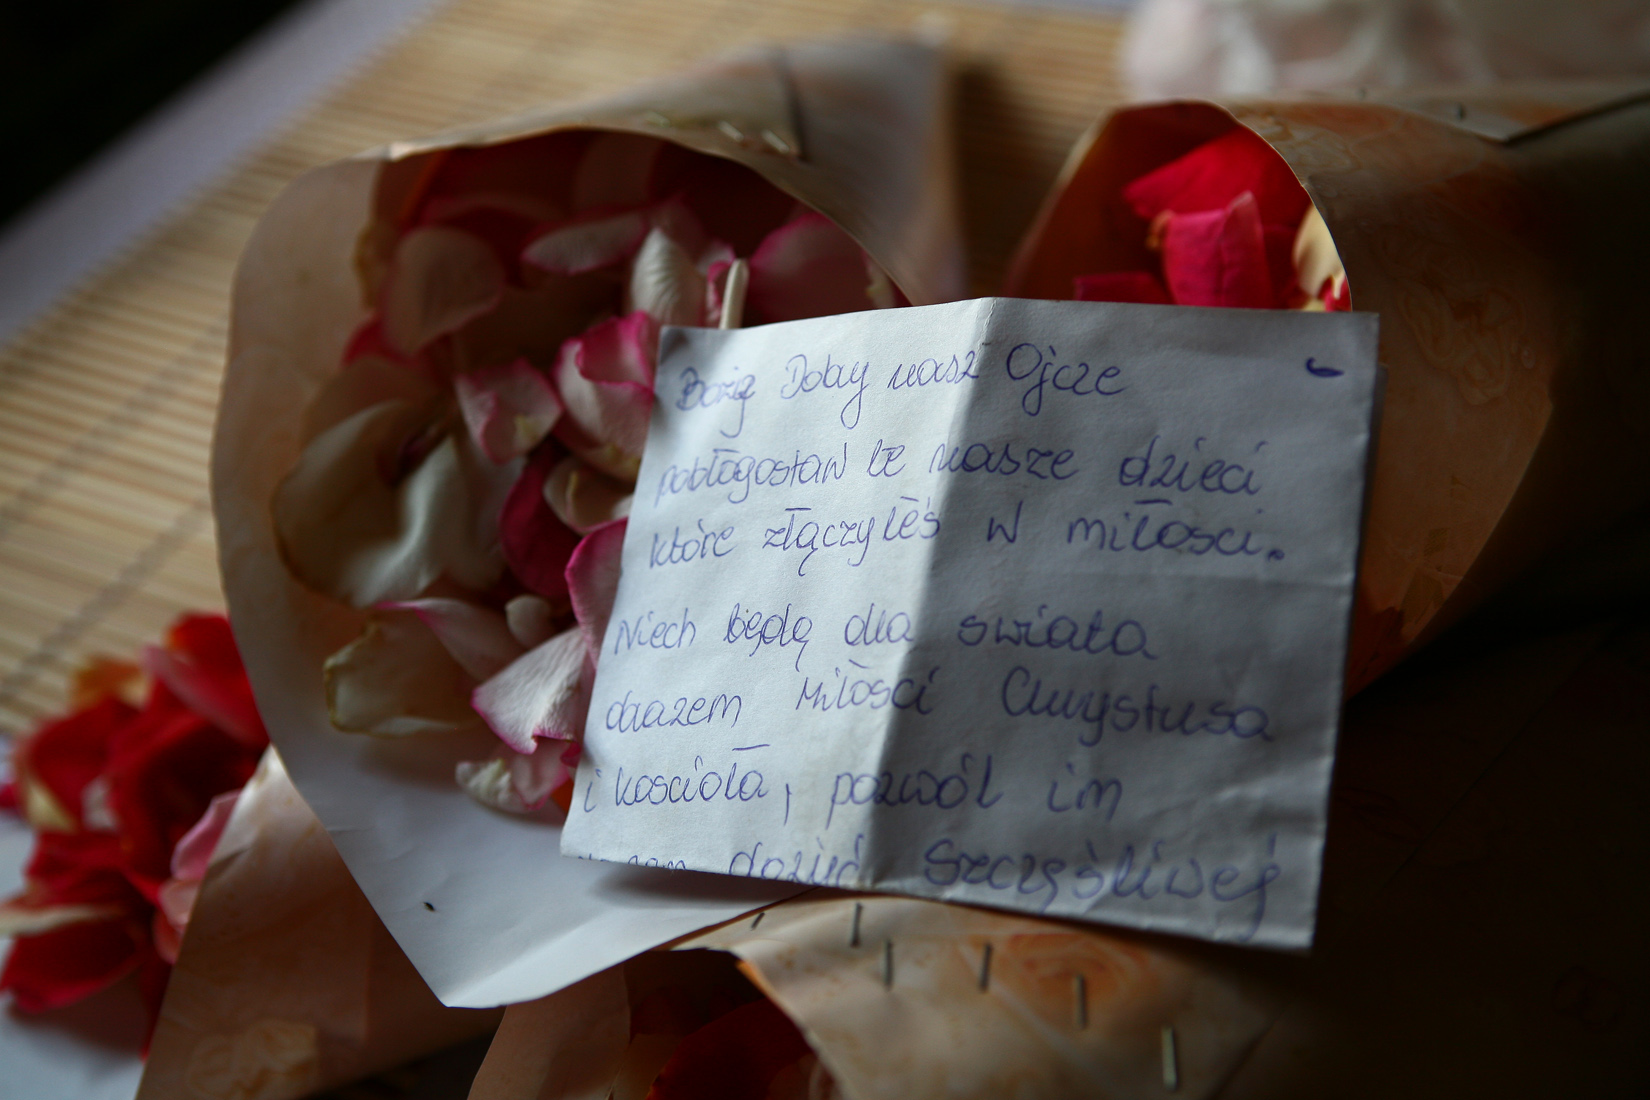 Bożę Doby nasz Ojcze
pobłogosław te nasze dzieci
które złączyłeś w miłości.
Niech będą dla swiata
obrazem Miłości Chrystusa
i kościoła, pozwól im
dożyć szczęśliwej